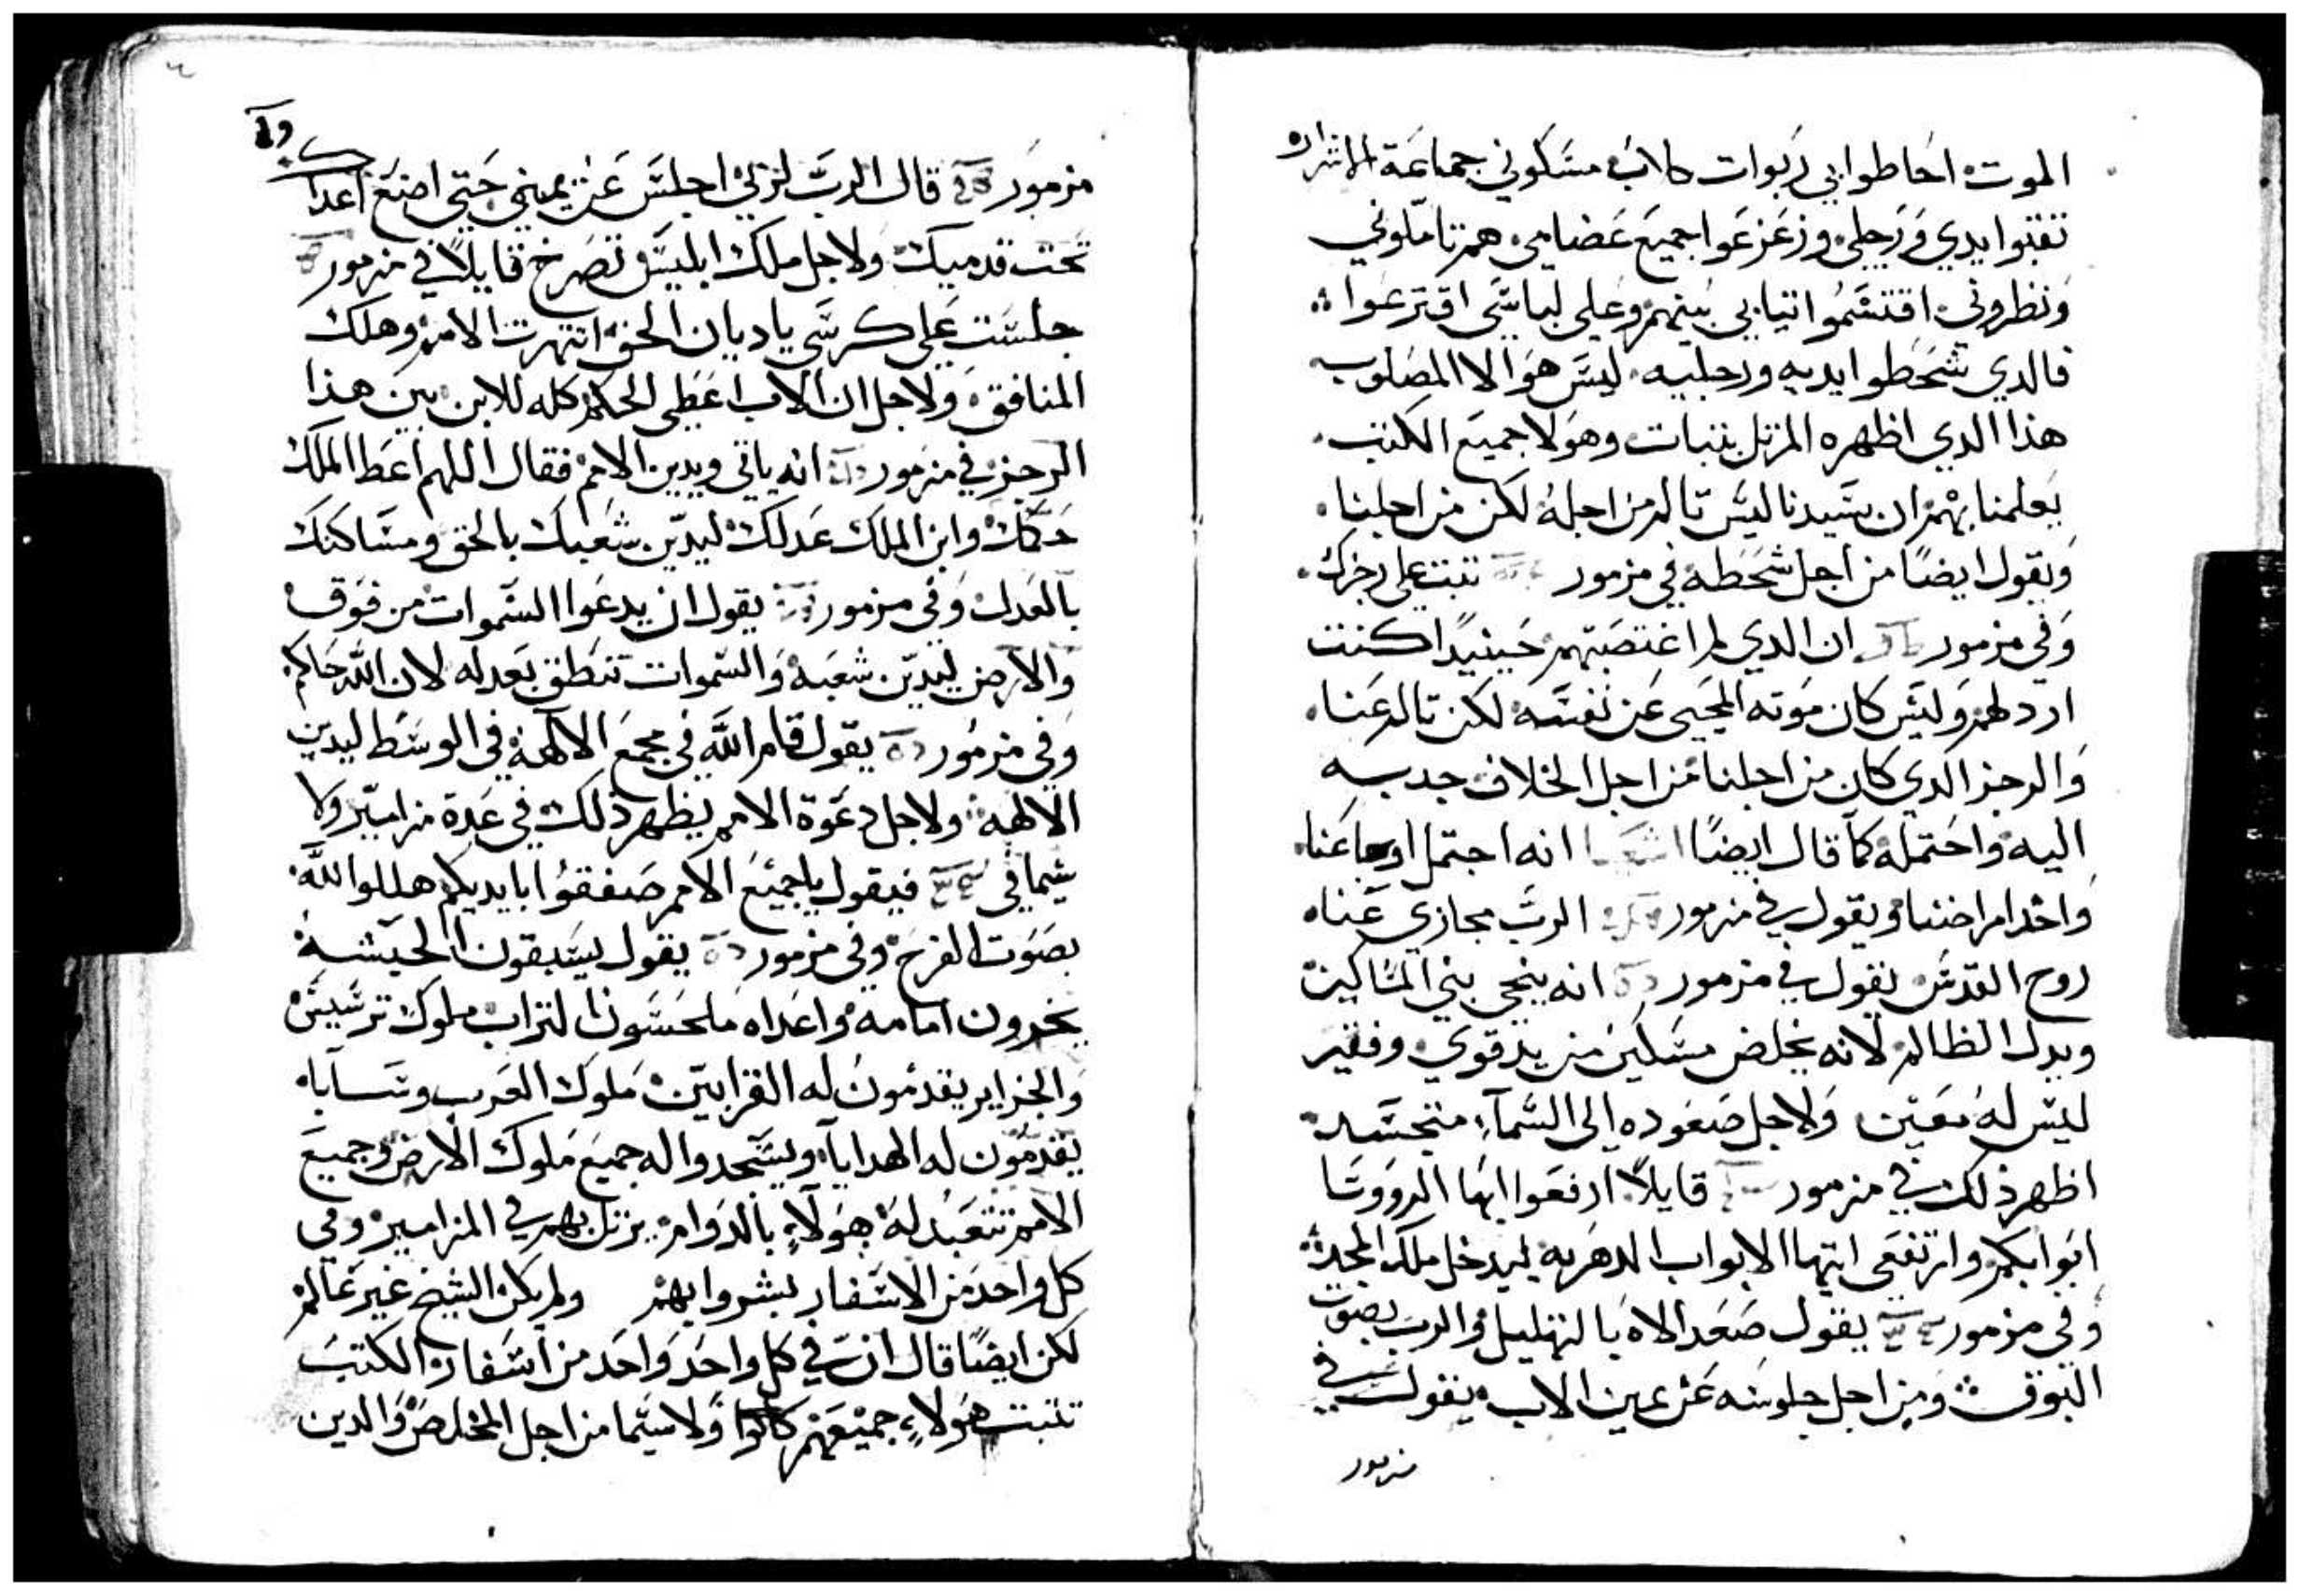 الموت احاطوا بي ربوات كلاب مسكوني جماعة الاشرار
تقبوا يدي ورجلي وزعزعوا جميع عضامي هم تاملوني
ونظروني اقتسموا تيابي بينهم وعلي لباسي اقترعوا
فالدي شحطوا يديه ورجليه ليس هو الا المصلوب
هذا الدي اظهره المرتل بتبات وهولا جميع الكتب
يعلمنا بهم ان سيدنا ليس تالم من اجله لكن من اجلنا
ويقول ايضًا من اجل شحطه في مزمور تبت علي رجزك
وفي مزمور ان الدي لم اغتصبتهم حينيدًا كنت
ارد لهم وليس كان موته المحيي عن نفسه لكن تالم عنا
والرجز الدي كان من اجلنا من اجل الخلاف جدبه
اليه واحتمله كما قال ايضًا اشعيا انه احتمل اوجاعنا
واخد امراضنا ويقول في مزمور الرب مجازي عناه
روح القدس يقول في مزمور انه ينجي بني المساكين
ويدل الظالم لانه يخلص مسكين من يد قوي وفقير
ليس له معين ولاجل صعوده الى السمآء متجسد
اظهر ذلك في مزمور قايلاً ارفعوا ايها الرووسا
ابوابكم وارتفعي ايتها الابواب الدهريه ليدخل ملك المجد
وفي مزمور يقول صعد الاه بالتهليل والرب بصوت
البوق ومن اجل جلوسه عن يمين الاب يقول في
مزمور
مزمور قال الرب لربي اجلس عن يميني حتي اضع اعداك
تحت قدميك ولاجل ملك ابليس تصرخ قايلاً في مزمور
جلست علي كرسي ياديان الحق انتهرت الامم وهلك
المنافق ولاجل ان الاب اعطي الحكم كله للابن بين هذا
الرجز في مزمور انه ياتي ويدين الامم فقال اللهم اعط الملك
حكمك وابن الملك عدلك ليدين شعبك بالحق ومساكنك
بالعدل وفي مزمور يقول ان يدعوا السموات من فوق
والارض ليدين شعبه والسموات تنطق بعدله لان الله حاكم
وفي مزمور يقول قام الله في مجمع الالهة في الوسط ليدين
الالهة ولاجل دعوة الامم يظهر ذلك في عدة مزامير ولا
سيما في فيقول يا جميع الامم صفقوا بايديكم هللوا لله
بصوت الفرح وفي مزمور يقول يسبقون الحبشة
يخرون امامه واعداه ملحسون التراب ملوك ترسيس
والجزاير يقدمون له القرابين ملوك العرب وسابا
يقدمون له الهدايا ويسجدوا له جميع ملوك الارض وجميع
الامم تتعبد له هولآء بالدوام يرتل بهم في المزامير وفي
كل واحد من الاسفار بشروا بهم ولم يكن الشيخ غير عالم
لكن ايضًا قال ان في كل واحد واحد من اسفار الكتب
تتبت هولاء جميعهم كانوا ولا سيما من اجل المخلص والدين